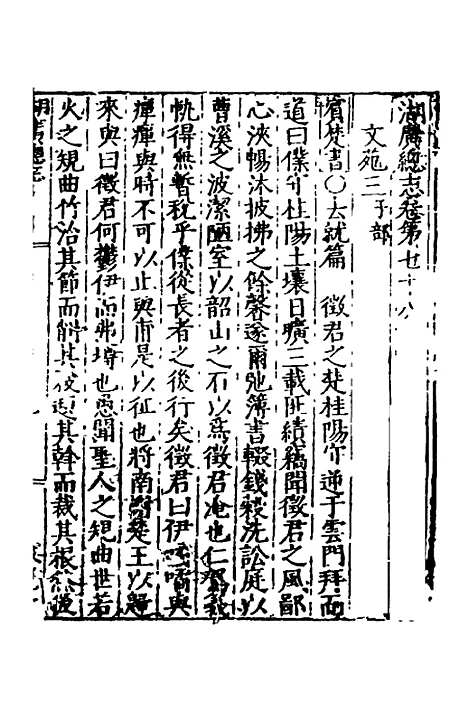 湖廣總志卷第七十八
文苑三子部
賓楚書〇去就篇 徵君之楚桂陽守逆于雲門拜而
道曰僕守桂陽土壤日曠三載匪績竊聞徵君之風鄙
心浹暢沐披拂之餘馨遂爾弛簿書輟錢穀洗訟庭以
曹溪之波潔陋室以韶山之石以爲徵君淹也仁
軌得無暫稅乎僕從長者之後行矣徵君曰伊 嗜與
痺痺與時不可以止與市是以征也將南 楚王以
來與曰徵君何鬱伊而弗 也愚聞聖人之規曲世若
火之規曲竹治其節而 其 其幹而裁其 然後